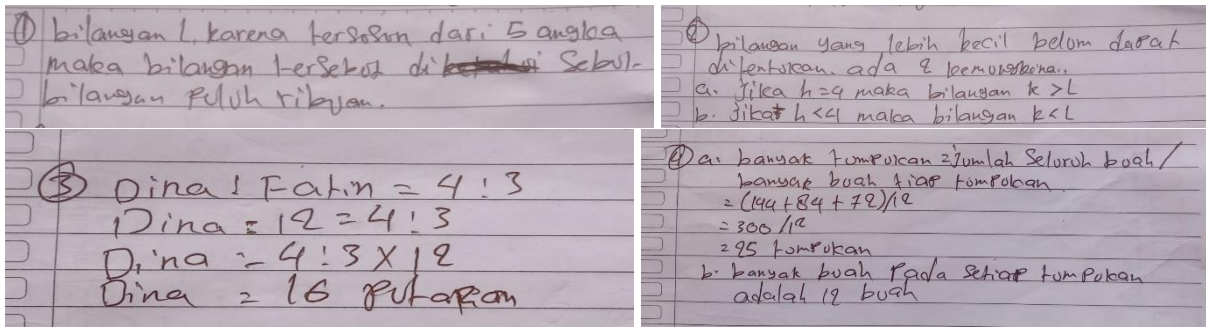 ① bilangan L, karena tersosun dari 5 angka
maka bilangan tersebut di sebut
bilangan puluh ribuan.
② bilangan yang lebih kecil belum dapat
ditentukan. ada 2 kemungkina..
a. Jika h=4 maka bilangan k > L
b. Jika h<4 maka bilangan k<L
③ Dina : Fatin = 4 : 3
Dina = 12 = 4 : 3
Dina = 4 : 3 x 12
Dina = 16 putaran
④ a. banyak tumpukan = Jumlah Seluruh buah /
banyak buah tiap tumpukan
= (144 + 84 + 72)/12
= 300/12
= 25 tumpukan
b. banyak buah Pada Setiap tumpukan
adalah 12 buah